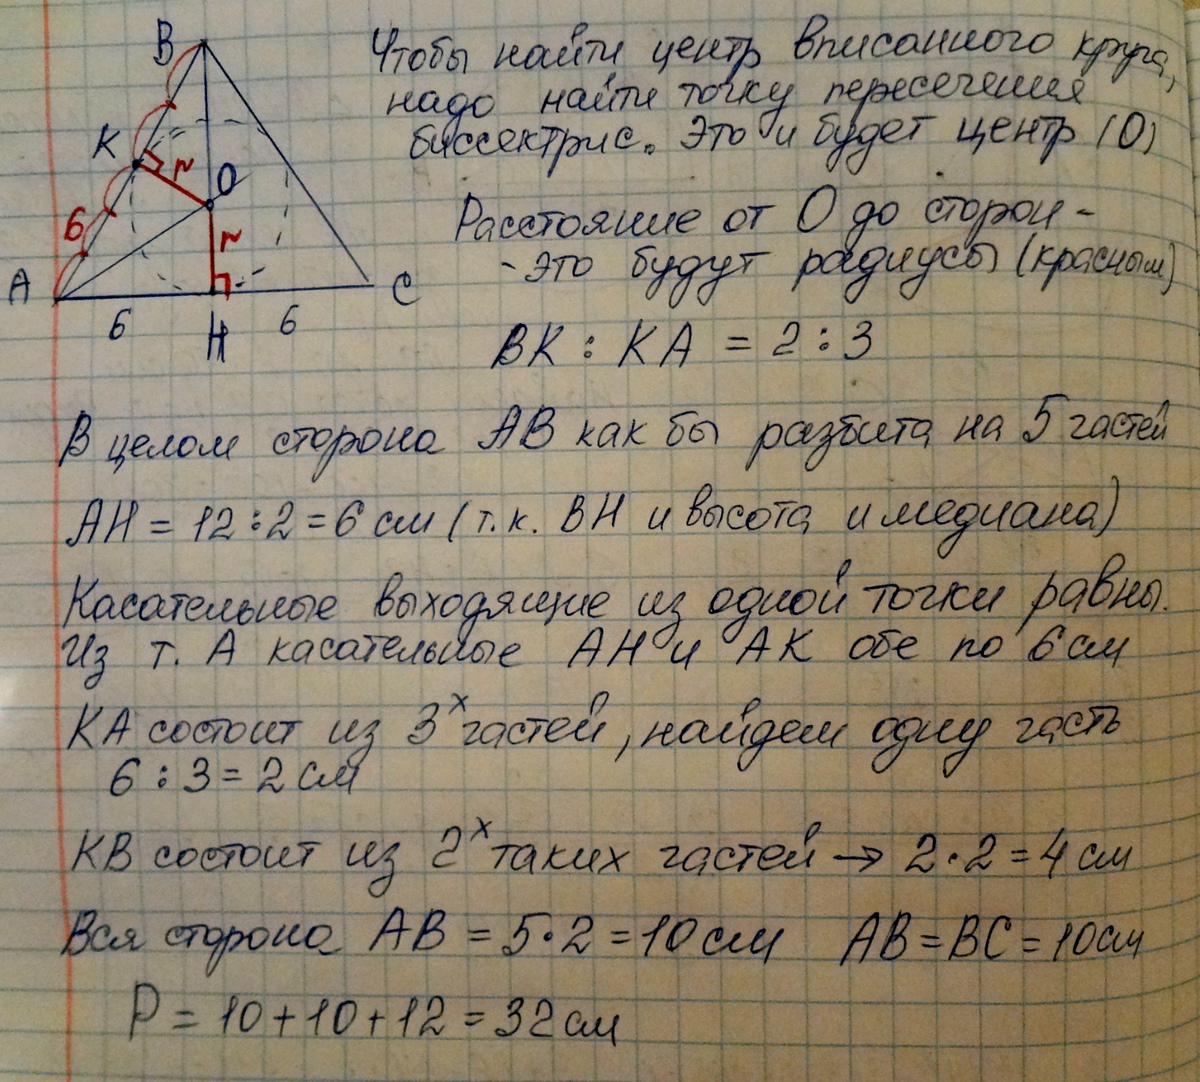 Чтобы найти центр вписанного круга,
надо найти точку пересечения
биссектрис. Это и будет центр (О)
Расстояние от О до сторон -
- это будут радиусы (красным)
ВК : КА = 2 : 3
В целом сторона АВ как бы разбита на 5 частей
АН = 12 : 2 = 6 см (т.к. ВН и высота и медиана)
Касательные выходящие из одной точки равны.
Из т. А касательные АН и АК обе по 6 см
КА состоит из 3х частей, найдем одну часть
6 : 3 = 2 см
КВ состоит из 2х таких частей → 2 · 2 = 4 см
Вся сторона АВ = 5 · 2 = 10 см АВ = ВС = 10 см
Р = 10 + 10 + 12 = 32 см
В
К
r
О
6
r
А
С
6
Н
6